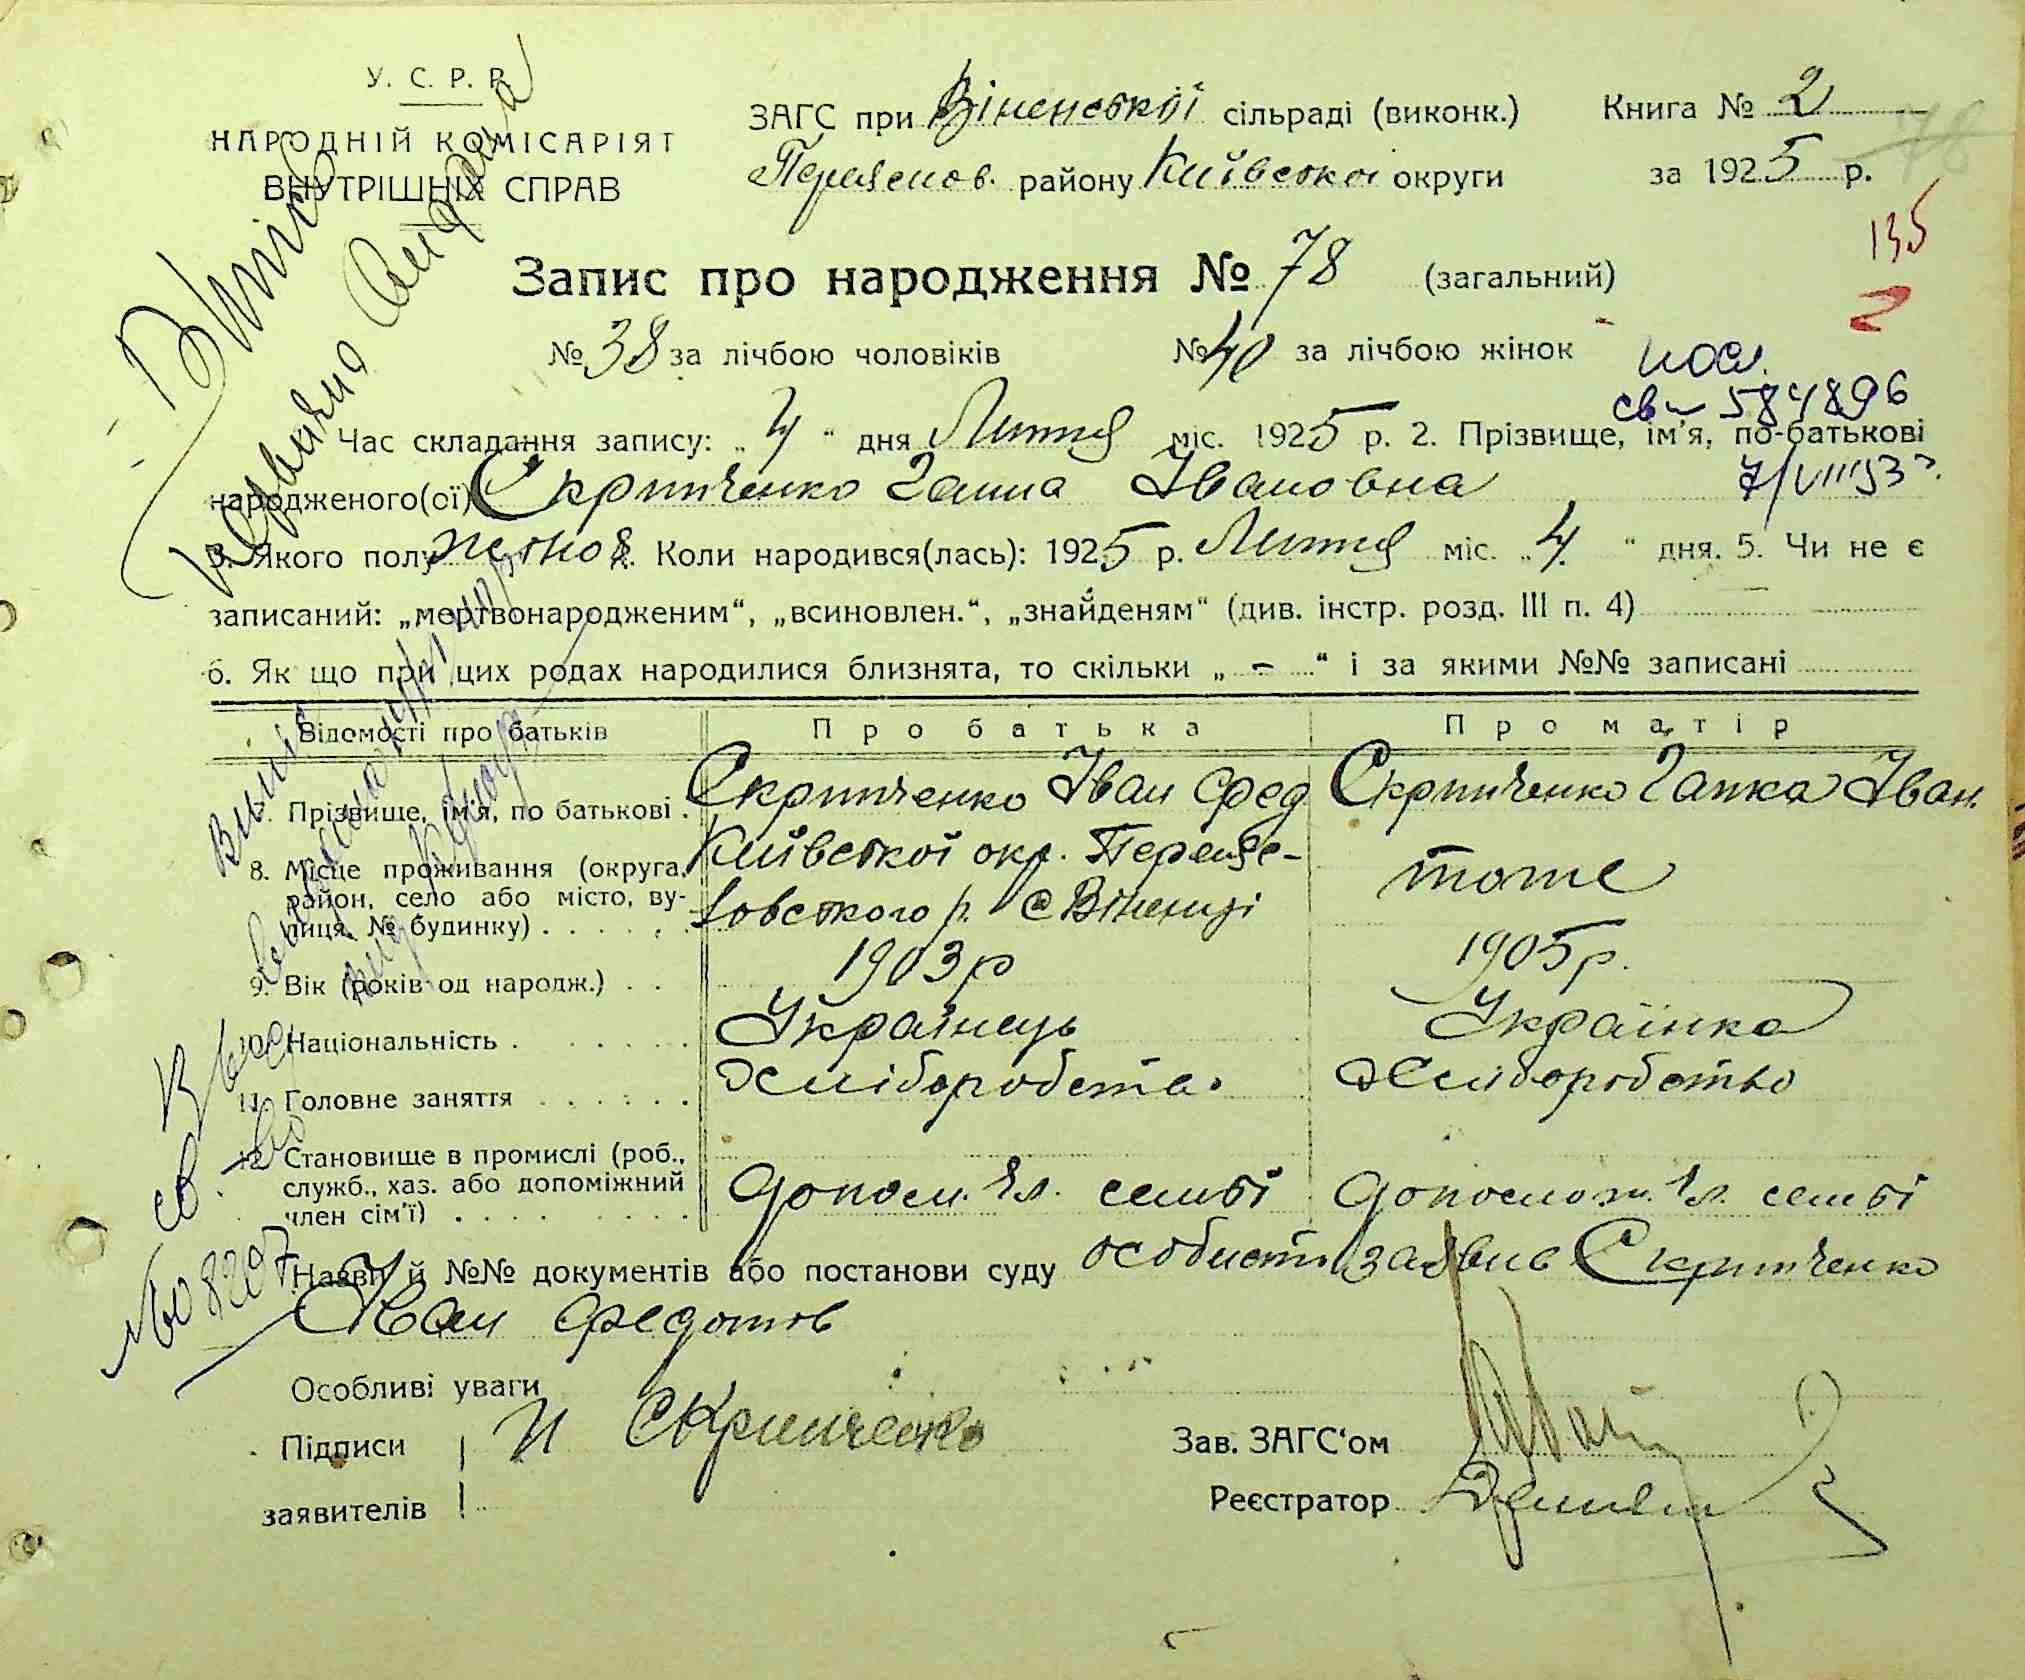 У. С. Р. Р.
НАРОДНІЙ КОМІСАРІЯТ
ВНУТРІШНІХ СПРАВ
ЗАГС при Віненської сільраді (виконк.)
Переяслов. району Київської округи
Книга № 2
за 1925 р.
78
135
Запис про народження № 78 (загальний)
№ 38 за лічбою чоловіків № 40 за лічбою жінок
584896
Час складання запису: „ 4 “ дня Лютня міс. 1925 р. 2. Прізвище, ім'я, по-батькові
7/VIII 53 г.
народженого(ої) Скрипченко Ганна Івановна
3. Якого полу жіноч. Коли народився(лась): 1925 р. Лютня міс. „ 4. “ дня. 5. Чи не є
записаний: „мертвонародженим“, „всиновлен.“, „знайденям“ (див. інстр. розд. III п. 4)
6. Як що при цих родах народилися близнята, то скільки „ – “ і за якими №№ записані
Відомості про батьків Про батька Про матір
7. Прізвище, ім'я, по батькові . Скрипченко Іван Фед Скрипченко Гапка Іван.
8. Місце проживання (округа, район, село або місто, вулиця, № будинку) . . . . . .
Київської окр. Переяс-
ловського р. с Віненці
тоже
9. Вік (років од народж.) . . 1903 р 1905 р.
10. Національність . . . . . . Українець Українка
11. Головне заняття . . . . . . Хліборобств. Хліборобство
12. Становище в промислі (роб., служб., хаз. або допоміжний член сім'ї) . . . . . . . .
допом. чл. семьї допомож. чл. семьї
Назви й №№ документів або постанови суду особисто заявив Скрипченко
Іван Федотов
Особливі уваги
Підписи И Скрипченко
заявителів
Зав. ЗАГС'ом
Реєстратор
№ 08207